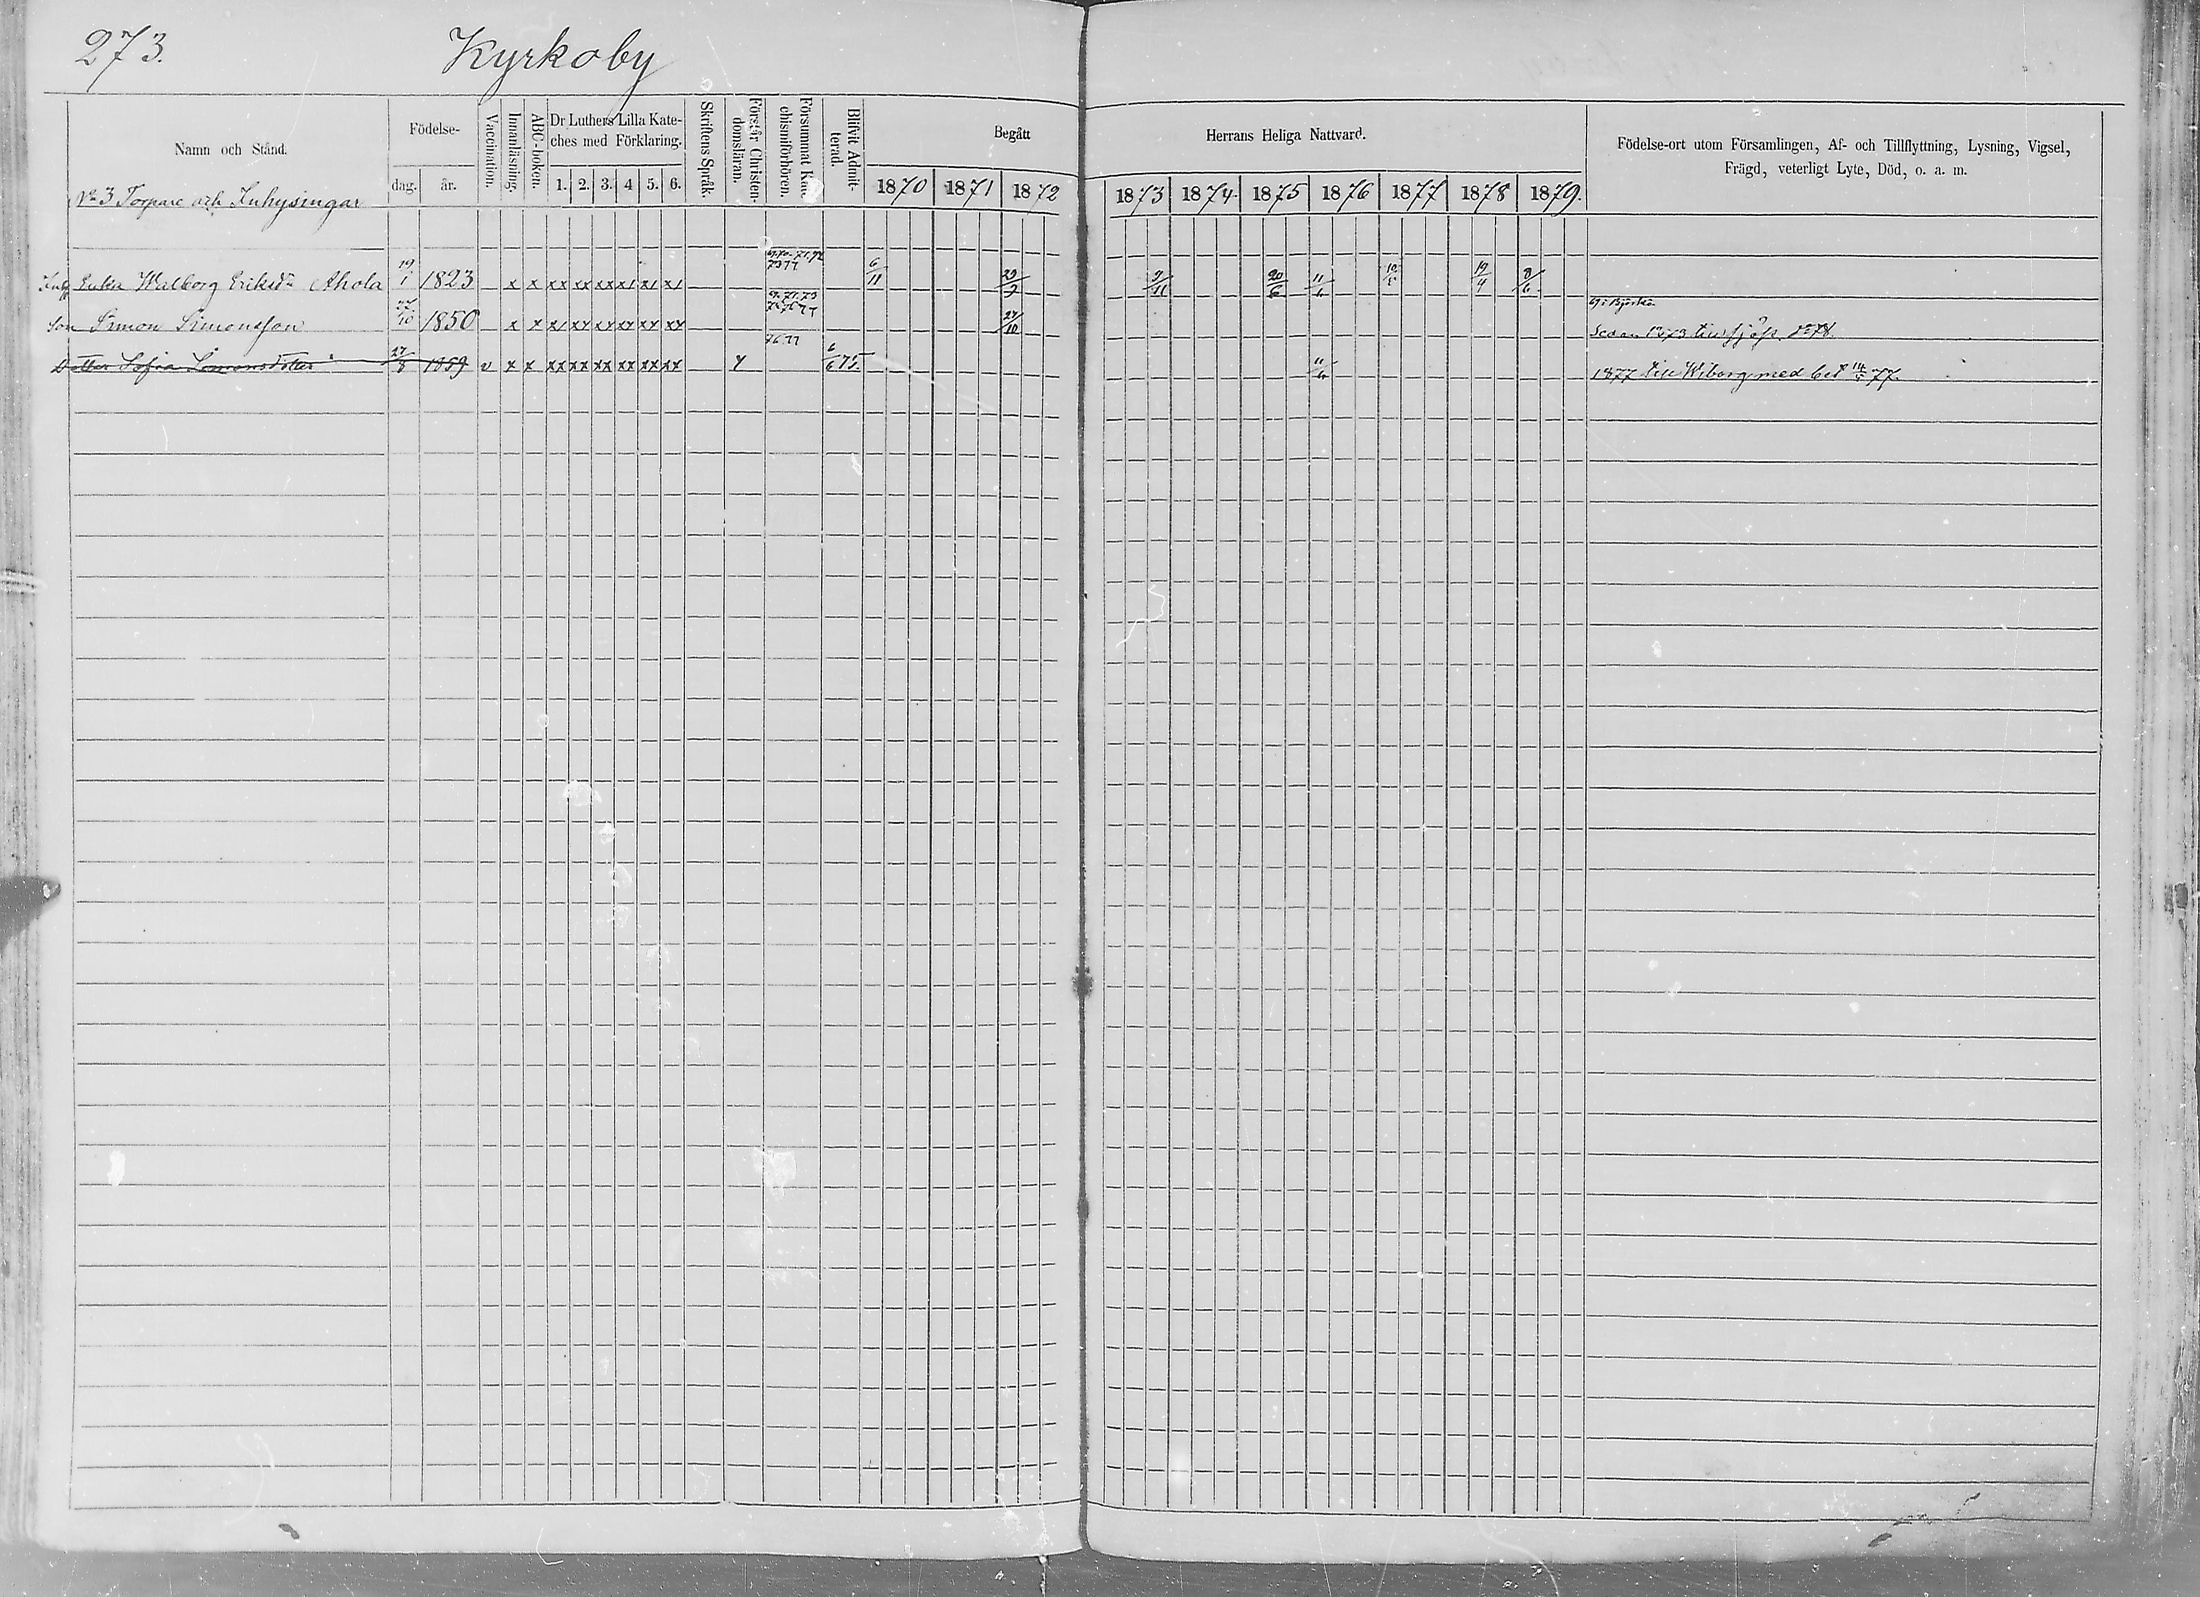 273. Kyrkoby
Namn och Stånd.
Födelse-
dag. år.
Vaccination.
Innanläsning.
ABC-boken.
Dr Luthers Lilla Kate-
ches med Förklaring.
1. 2. 3. 4 5. 6.
Skriftens Språk.
Förstår Christen-
domsläran.
Försummat Kat
chismiförhören.
Blifvit Admit-
terad.
Begått
1870 1871 1872
Herrans Heliga Nattvard.
1873 1874. 1875 1876 1877 1878 1879.
Födelse-ort utom Församlingen, Af- och Tillflyttning, Lysning, Vigsel,
Frägd, veterligt Lyte, Död, o. a. m.
No 3 Torpare och Inhysingar
Enka Walborg Eriksdr Ahola 19/1 1823 x x xx xx xx x/ x/ x/ 6/11 29/9 9/11 20/6 11/6 19/4 8/6
Son Simon Simonsson 27/10 1850 x x x/ xx xx xx xx xx 27/10
Dotter Sofia Simonsdotter 27/8 1859 v x x xx xx xx xx xx xx 76 77 6/6 75. 11/6 1877 till Wiborg med bet 77.